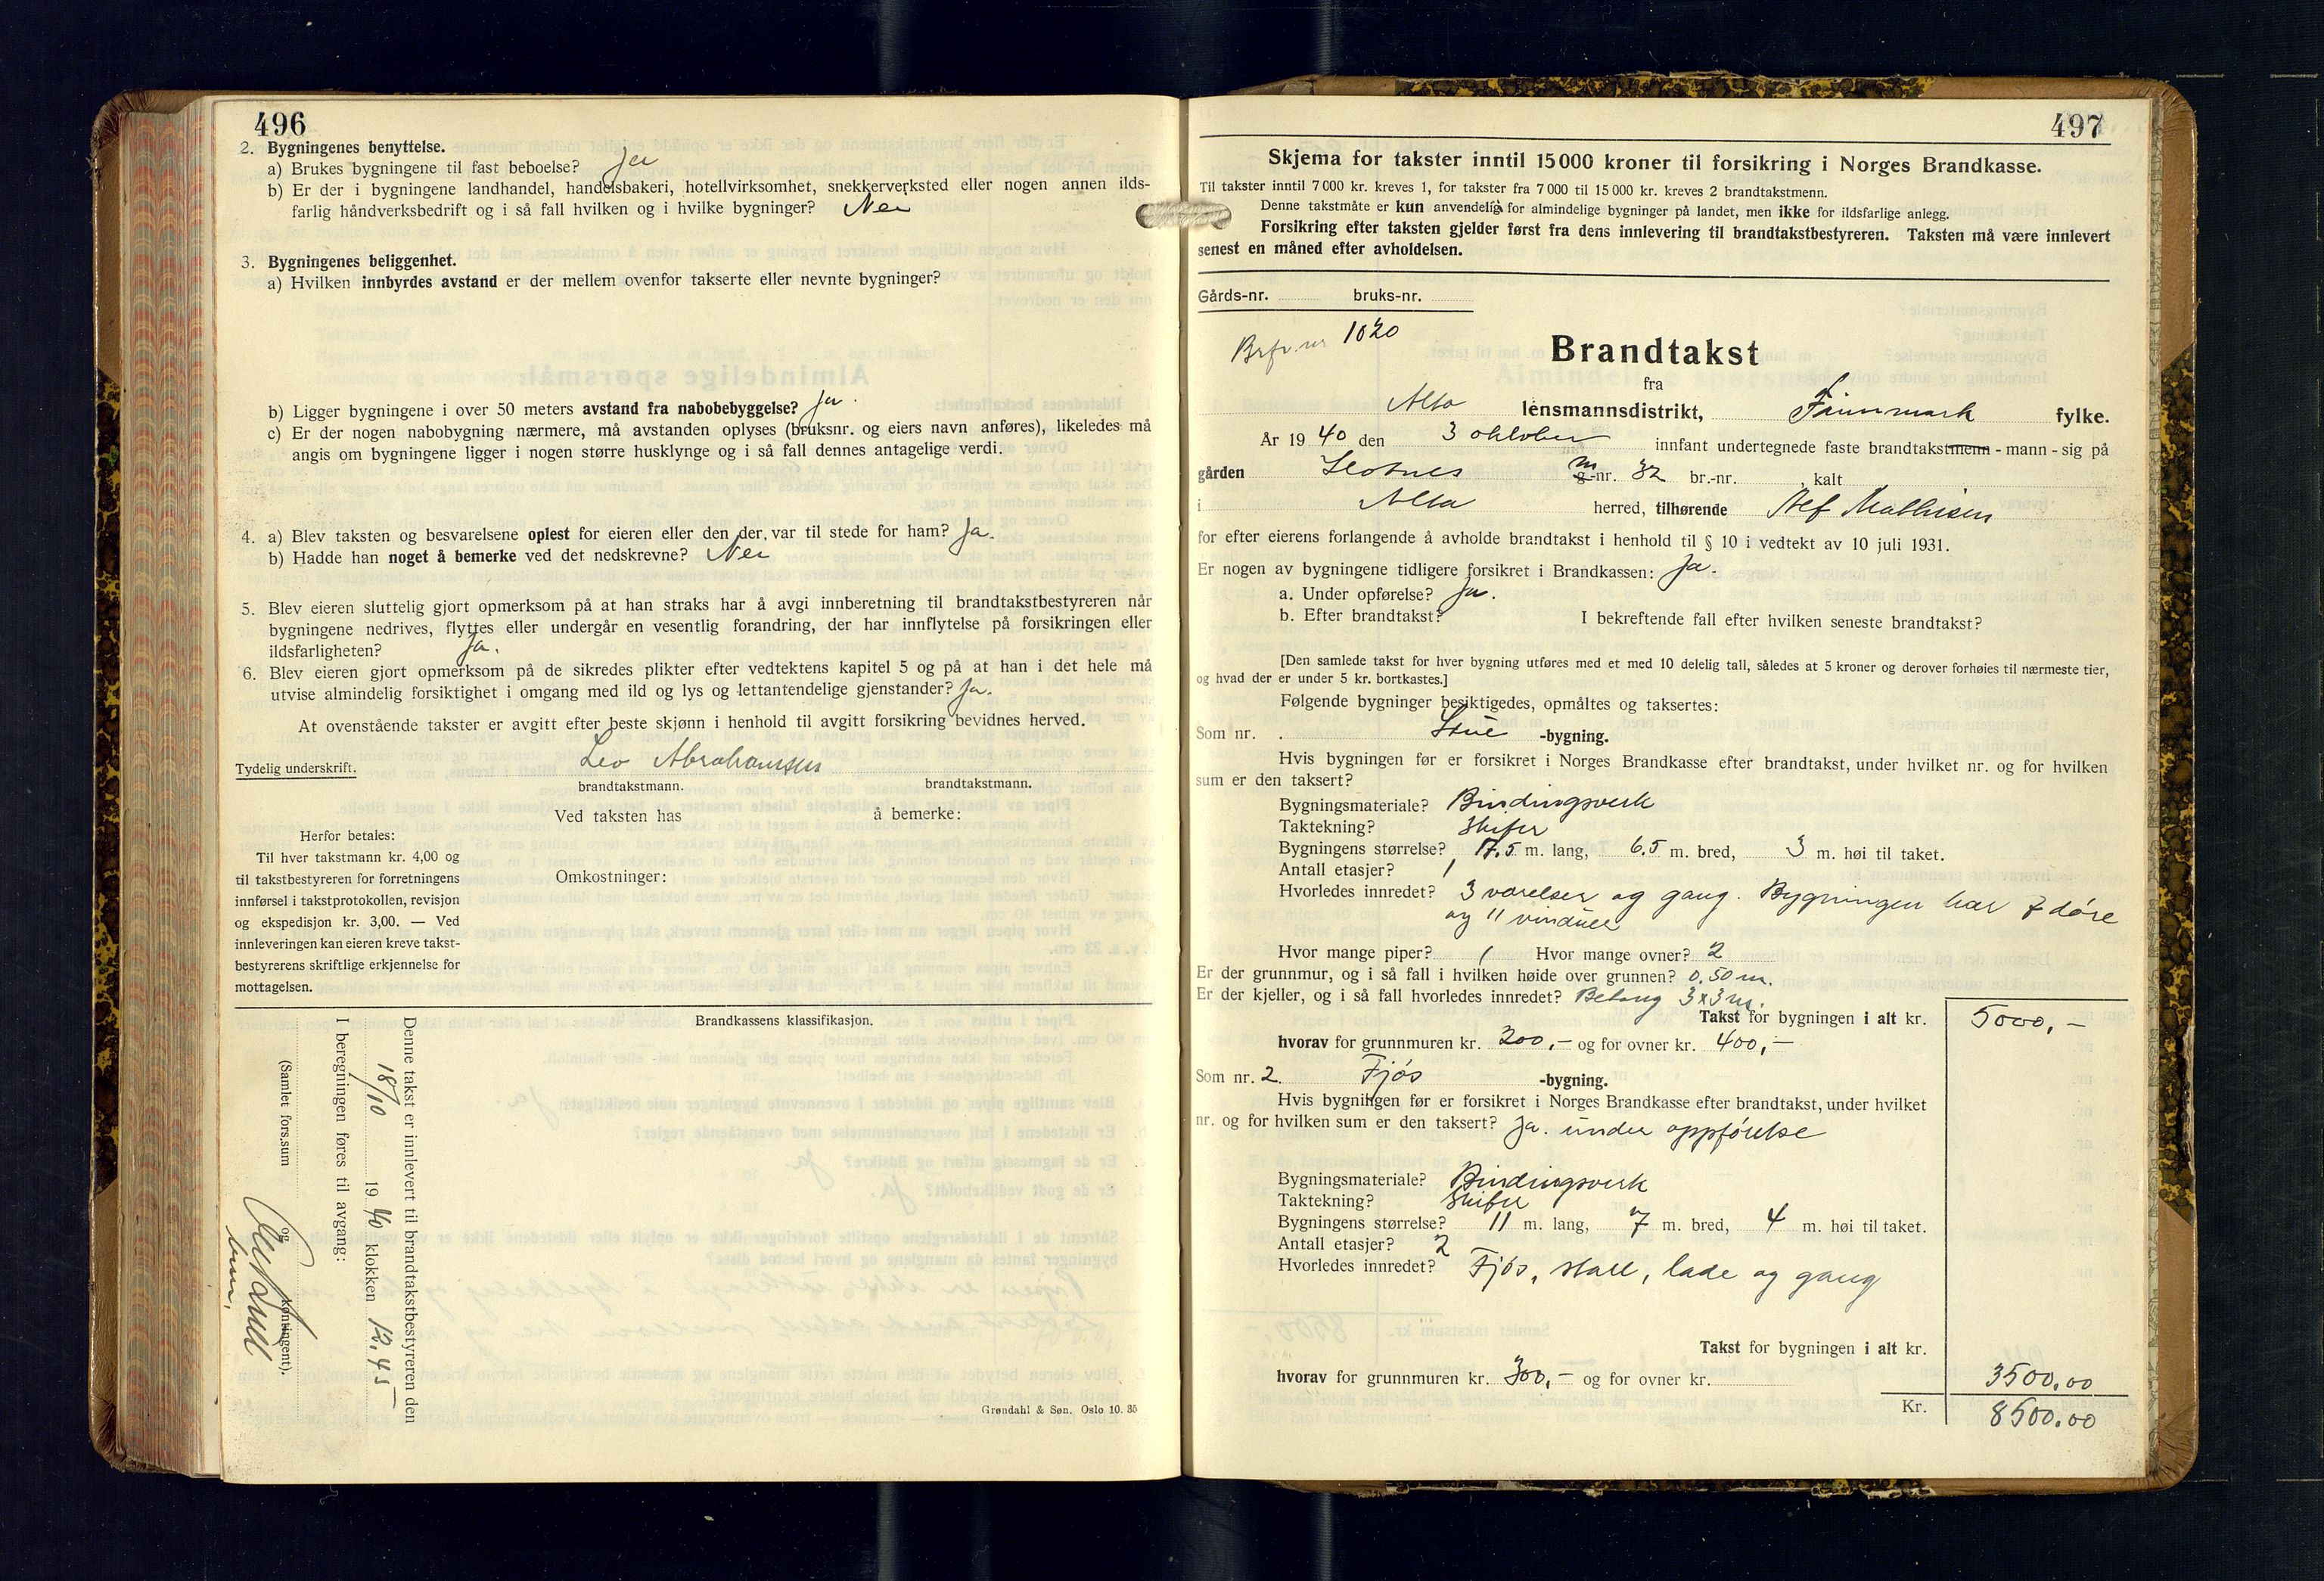 496
2. Bygningenes benyttelse.
a) Brukes bygningene til fast beboelse? Ja
b) Er der i bygningene landhandel, handelsbakeri, hotellvirksomhet, snekkerverksted eller nogen annen ilds-
farlig håndverksbedrift og i så fall hvilken og i hvilke bygninger? Nei
3. Bygningenes beliggenhet.
a) Hvilken innbyrdes avstand er der mellem ovenfor takserte eller nevnte bygninger?
b) Ligger bygningene i over 50 meters avstand fra nabobebyggelse? Ja.
c) Er der nogen nabobygning nærmere, må avstanden oplyses (bruksnr. og eiers navn anføres), likeledes må
angis om bygningene ligger i nogen større husklynge og i så fall dennes antagelige verdi.
4. a) Blev taksten og besvarelsene oplest for eieren eller den der var til stede for ham? Ja.
b) Hadde han noget å bemerke ved det nedskrevne? Nei
5. Blev eieren sluttelig gjort opmerksom på at han straks har å avgi innberetning til brandtakstbestyreren når
bygningene nedrives, flyttes eller undergår en vesentlig forandring, der har innflytelse på forsikringen eller
ildsfarligheten? Ja.
6. Blev eieren gjort opmerksom på de sikredes plikter efter vedtektens kapitel 5 og på at han i det hele må
utvise almindelig forsiktighet i omgang med ild og lys og lettantendelige gjenstander? Ja.
At ovenstående takster er avgitt efter beste skjønn i henhold til avgitt forsikring bevidnes herved.
Tydelig underskrift. Leo Abrahamsen
brandtakstmann. brandtakstmann.
Ved taksten has å bemerke:
Herfor betales:
Til hver takstmann kr. 4,00 og
til takstbestyreren for forretningens
innførsel i takstprotokollen, revisjon
og ekspedisjon kr. 3,00. — Ved
innleveringen kan eieren kreve takst-
bestyrerens skriftlige erkjennelse for
mottagelsen.
Omkostninger:
Brandkassens klassifikasjon.
Denne takst er innlevert til brandtakstbestyreren den
18/10 19 40 klokken 12.45
I beregningen føres til avgang:
(Samlet fors.sum og kontingent).
Grøndahl & Søn, Oslo 10. 35
497
Skjema for takster inntil 15 000 kroner til forsikring i Norges Brandkasse.
Til takster inntil 7 000 kr. kreves 1, for takster fra 7 000 til 15 000 kr. kreves 2 brandtakstmenn.
Denne takstmåte er kun anvendelig for almindelige bygninger på landet, men ikke for ildsfarlige anlegg.
Forsikring efter taksten gjelder først fra dens innlevering til brandtakstbestyreren. Taksten må være innlevert
senest en måned efter avholdelsen.
Gårds-nr. bruks-nr.
1020
Brandtakst
fra
Alta lensmannsdistrikt, Finnmark fylke.
År 19 40 den 3 oktober innfant undertegnede faste brandtakstmenn - mann - sig på
gården g.-nr. 32 br.-nr. , kalt
i Alta herred, tilhørende Alf Mathisen
for efter eierens forlangende å avholde brandtakst i henhold til § 10 i vedtekt av 10 juli 1931.
Er nogen av bygningene tidligere forsikret i Brandkassen: Ja.
a. Under opførelse? Ja.
b. Efter brandtakst? I bekreftende fall efter hvilken seneste brandtakst?
[Den samlede takst for hver bygning utføres med et med 10 delelig tall, således at 5 kroner og derover forhøies til nærmeste tier,
og hvad der er under 5 kr. bortkastes.]
Følgende bygninger besiktigedes, opmåltes og taksertes:
Som nr. . Stue -bygning.
Hvis bygningen før er forsikret i Norges Brandkasse efter brandtakst, under hvilket nr. og for hvilken
sum er den taksert?
Bygningsmateriale? Bindingsverk
Taktekning? Skifer
Bygningens størrelse? 17.5 m. lang, 6.5 m. bred, 3 m. høi til taket.
Antall etasjer? 1
Hvorledes innredet? 3 værelser og gang. Bygningen har 7 døre
og 11 vinduer
Hvor mange piper? 1 Hvor mange ovner? 2
Er der grunnmur, og i så fall i hvilken høide over grunnen? 0.50 m.
Er der kjeller, og i så fall hvorledes innredet? Betong 3x3 m.
Takst for bygningen i alt kr. 5000,—
hvorav for grunnmuren kr. 200,— og for ovner kr. 400,—
Som nr. 2. Fjøs -bygning.
Hvis bygningen før er forsikret i Norges Brandkasse efter brandtakst, under hvilket
nr. og for hvilken sum er den taksert? Ja. under oppførelse
Bygningsmateriale? Bindingsverk
Taktekning? Skifer
Bygningens størrelse? 11 m. lang, 7 m. bred, 4 m. høi til taket.
Antall etasjer? 2
Hvorledes innredet? Fjøs, stall, lade og gang
Takst for bygningen i alt kr.
hvorav for grunnmuren kr. 300,— og for ovner kr. 3500.00
Kr. 8500.00